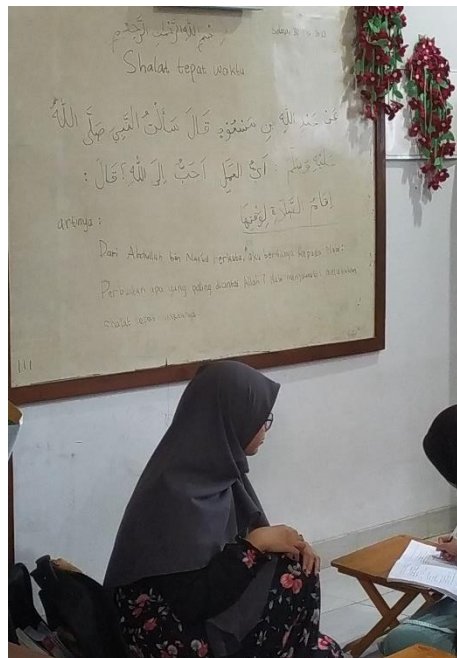 بسم الله الرحمن الرحيم
Shalat tepat waktu
عَنْ عَبْدِ اللهِ بنِ مَسْعُوْدٍ قَالَ سَأَلْتُ النَّبِيَ صَلَّى اللهُ
عَلَيْهِ وَسَلَّمَ : أَيُّ العَمَلِ اَحَبُّ إِلَى اللهِ؟ قَالَ :
إِقَامُ الصَّلَاةِ لِوَقْتِهَا
artinya :
Dari Abdullah bin Mas'ud berkata, aku bertanya kepada Nabi:
Perbuatan apa yang paling dicintai Allah? Nabi menjawab:
Shalat waktunya